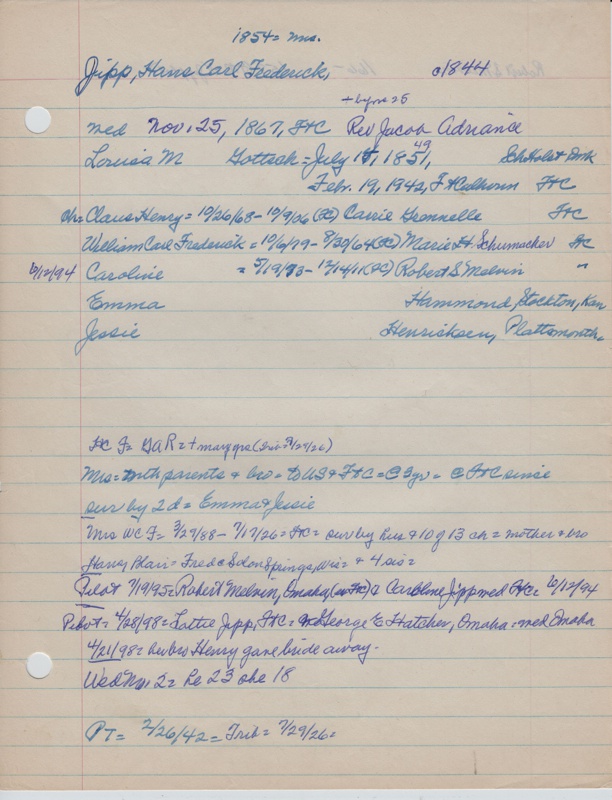 1854 = Mrs.
Jipp, Hans Carl Frederick, c1844
+ before 25
med Nov. 25, 1867, FtC Rev Jacob Adriance
Louisa M Gottsch = July 15, 1851, 49 Sch Holst Dmk
Febr. 19, 1942, Ft Calhoun FtC
ch = Claus Henry = 10/26/68 - 10/9/26 (FC) Carrie Gronnelle FtC
William Carl Frederick = 10/6/79 - 8/30/64 (FC) Marie H. Schumacher FtC
6/12/94 Caroline = 5/19/73 - 12/14/11 (FC) Robert S Melvin "
Emma Hammond, Stockton, Kan
Jessie Henricksen, Plattsmouth
FtC F = GAR = + many yrs (Trib 7/29/26)
Mrs = with parents & bro = to US & FtC = @ 3 yr = @ FtC since
sur by 2d = Emma & Jessie
Mrs WC F = 3/27/88 - 7/17/26 = FtC = sur by hus & 10 of 13 ch = mother & bro
Harry Blair = Fred @ Solon Springs, Wis = & 4 sis =
Pilot 7/19/95 = Robert Melvin, Omaha (or FtC) & Caroline Jipp med FtC = 6/12/94
Pilot = 4/28/98 = Lottie Jipp, FtC = George E Hatcher, Omaha = med Omaha
4/21/98 = bubro Henry gave bride away.
Wed No. 2 = he 23 she 18
PT = 2/26/42 = Trib = 7/29/26 =